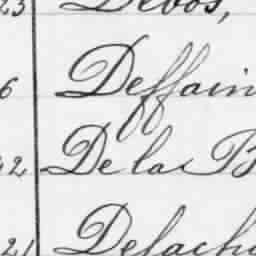 23 Debos,
6 Deffain
42 De la B
21 Delach